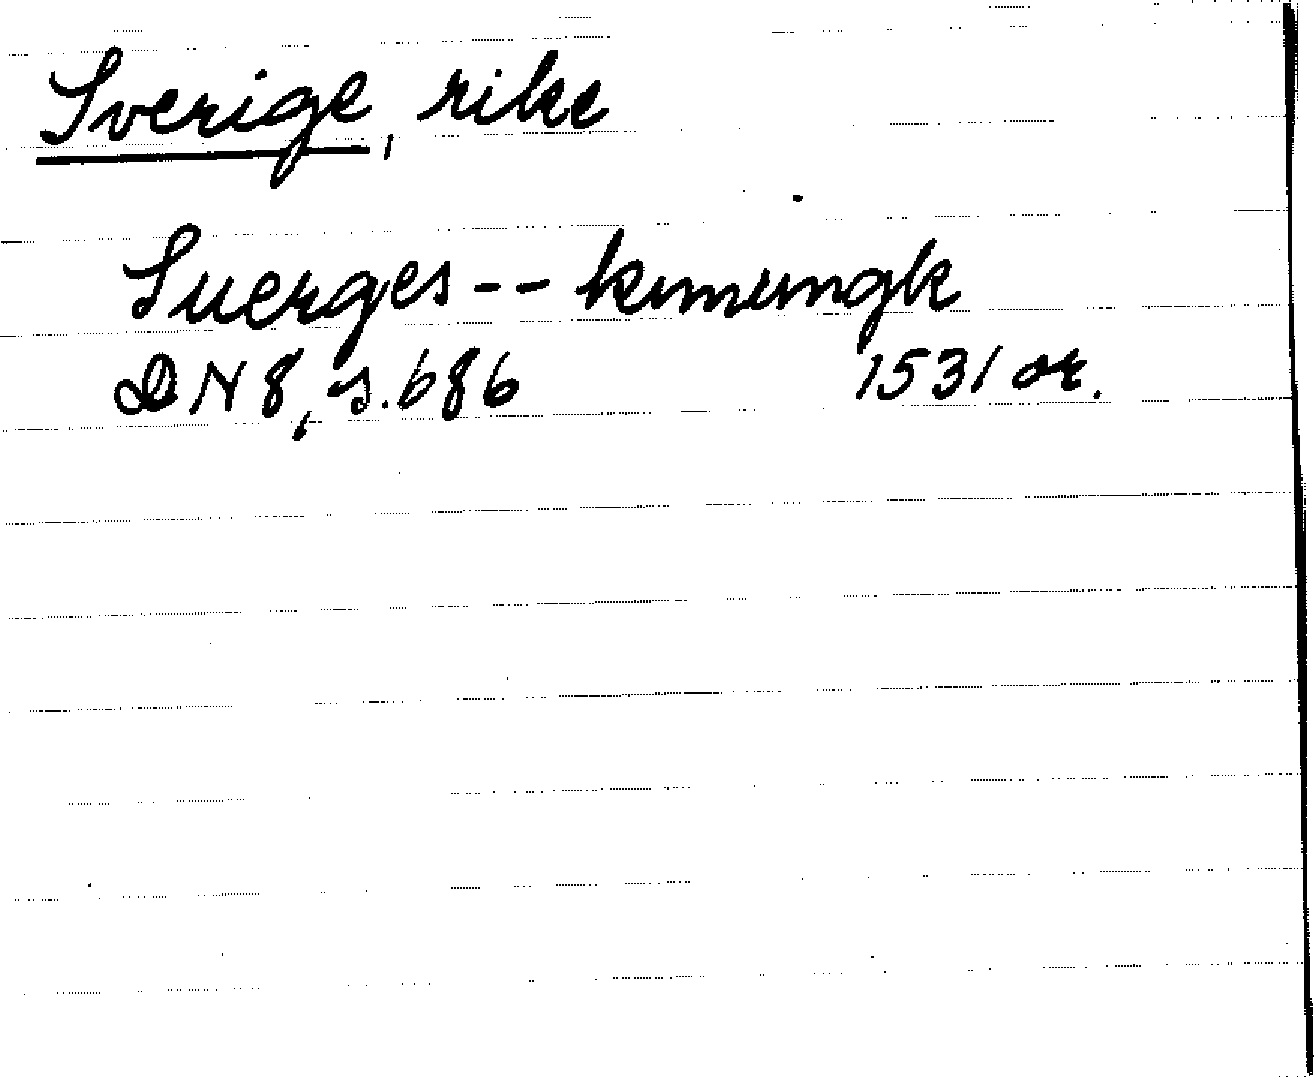 Sverige, rike
Suerges -- kunungk
DN 8, s. 686 1531 or.